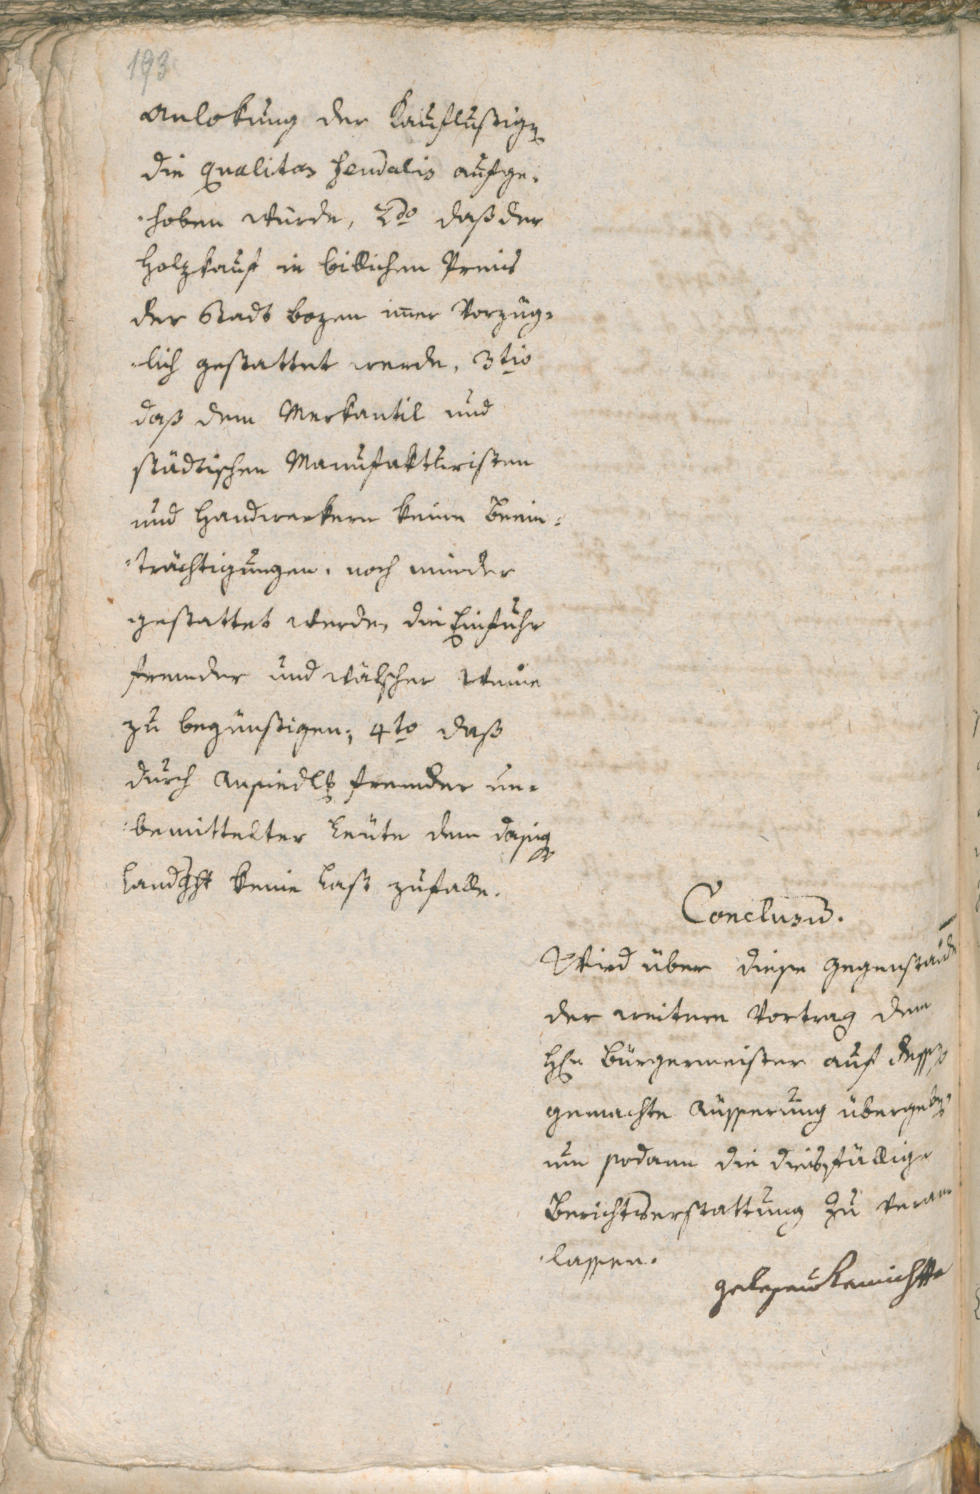 193
Anlokung der Kauflustigen
die qualitas feudalis aufge-
hoben würde, 2do daß der
Holzkauf in billichen Preis
der Stadt Bozen imer Vorzüg-
lich gestattet werde, 3tio
daß dem Merkantil und
städtischen Manufakturisten
und Handwerkern keine Beein-
trächtigungen, noch minder
gestattet werde, die Einfuhr
fremder und wälscher Weine
zu begünstigen; 4to daß
durch Ansiedlg fremder un-
bemittelter Leüte dem dasig
Landgcht keine Last zufalle.
Conclusũ.
Wird über diese Gegenstände
der weitere Vortrag dem
Hr Bürgermeister auf dessen
gemachte Äusserung übergeben
um sodann die diesfällige
Berichtserstattung zu veran
lassen.